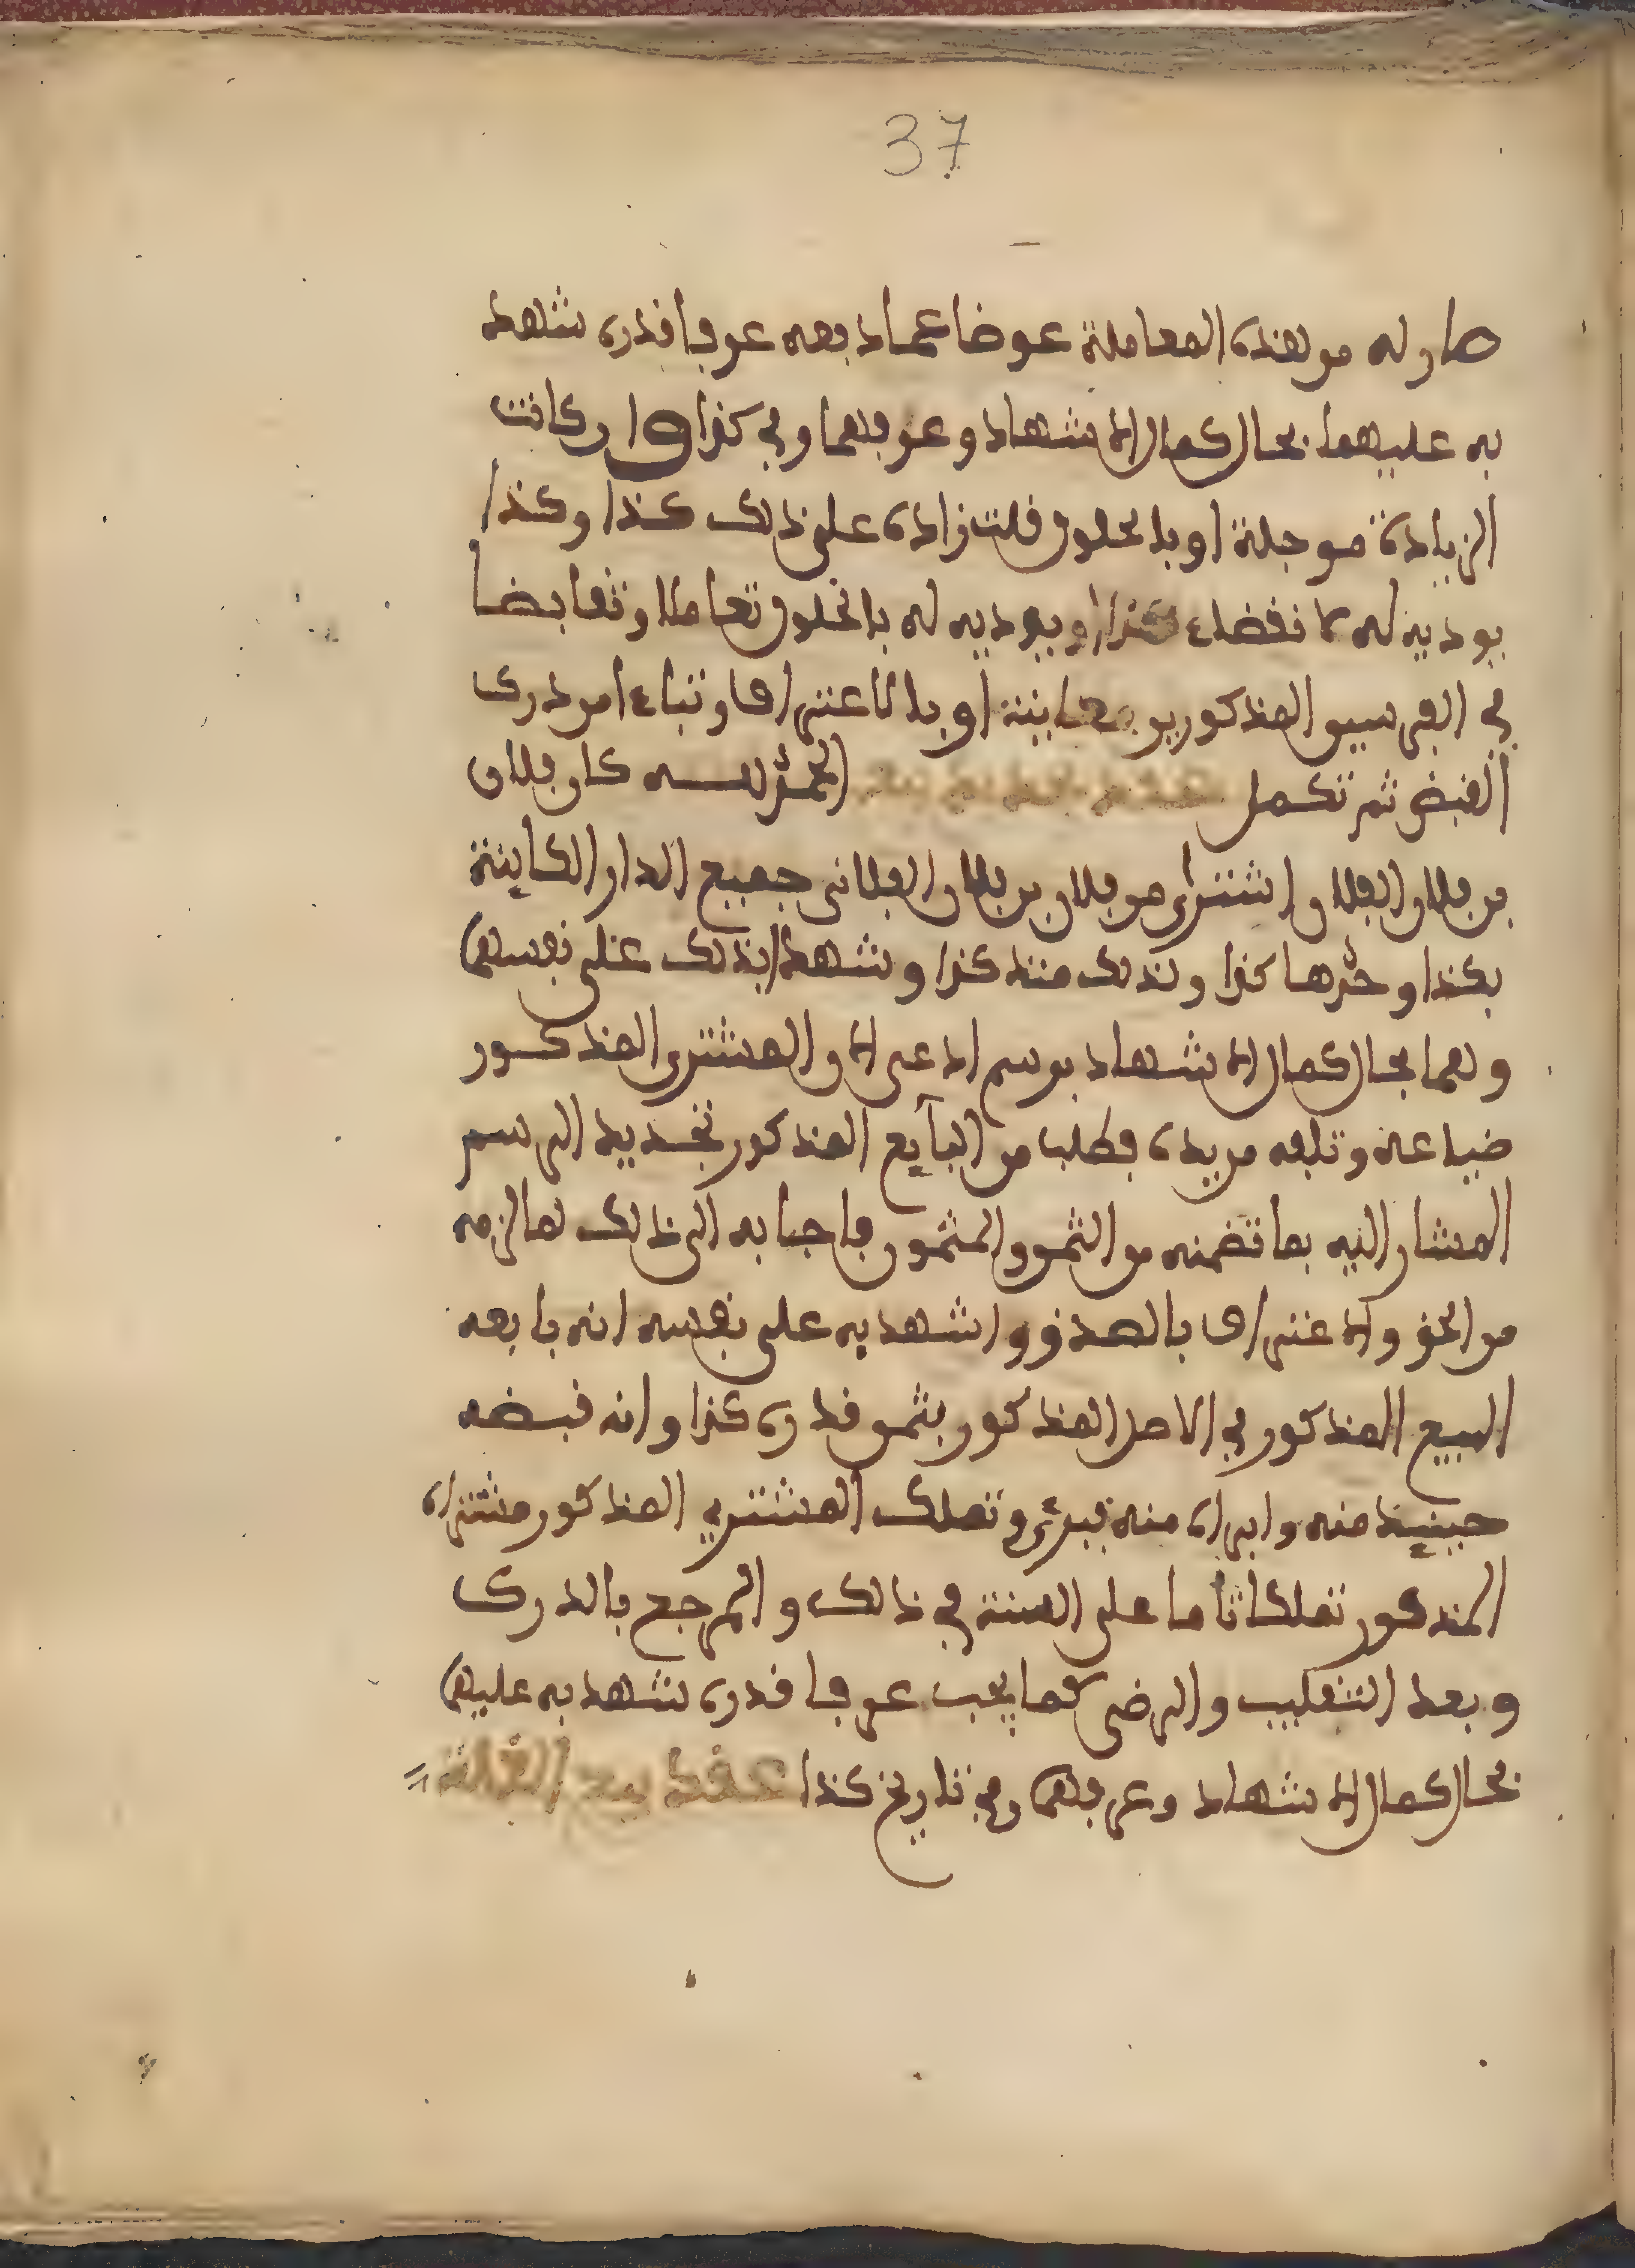 37
صار له من هذه المعاملة عوضا عما دفعه عرفا قدره شهد
به عليهما بحال كمال الاشهاد وعرفهما وفي كذا وان كانت
الزيادة موجلة او بالحلول قلت زاده على ذلك كذا وكذا
يوديه له لانقضاء كذا او يوديه له بالحلول تعاملا وتقابضا
في الفرسين المذكورين معاينة او بالاعتراف وتباءا من درك
القبض ثم تكمل الحمد لله كان فلان
بن فلان الفلان اشترى من فلان بن فلان الفلاني جميع الدار الكاينة
بكذا وحدها كذا وكذلك منتد كذا وشهدا بذلك على نفسهما
وهما بحال كمال الاشهاد برسم ادعى الان المشتري المذكور
ضياعه وتلفه من يده فطلب من البآيع المذكور تجديد الرسم
المشار اليه بما تضمنه من الثمن والمثمون فاجابه الى ذالك لما لزمه
من الحق والاعتراف بالصدق واشهد به على نفسه انه بايعه
البيع المذكور في الاصل المذكور بثمن قدره كذا وانه قبضه
حينيذ منه وابراه منه فبرئ وتملك المشتري المذكور مشتراه
المذكور تملكا تاما على السنة في ذالك والمرجع بالدرك
وبعد التقليب والرضى كما يجب عرفا قدره شهد به عليهما
بحال كمال الاشهاد وعرفهما وفي تاريخ كذا عقد بيع الغلة